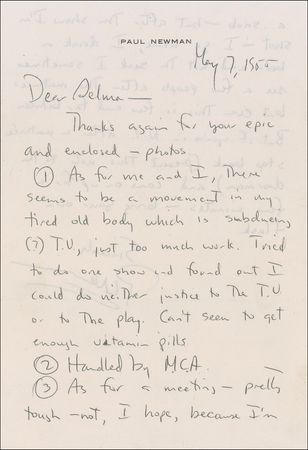 PAUL NEWMAN
May 7, 1955
Dear Delma—
Thanks again for your epic
and enclosed — photos.
① As for me and I, There
seems to be a movement in my
tired old body which is subduing
(?) T.V., just too much work. Tried
to do one show and found out I
could do neither justice to The T.V.
or to The play. Can't seem to get
enough vitamin pills
② Handled by M.C.A.
③ As for a meeting — pretty
tough — not, I hope, because I'm